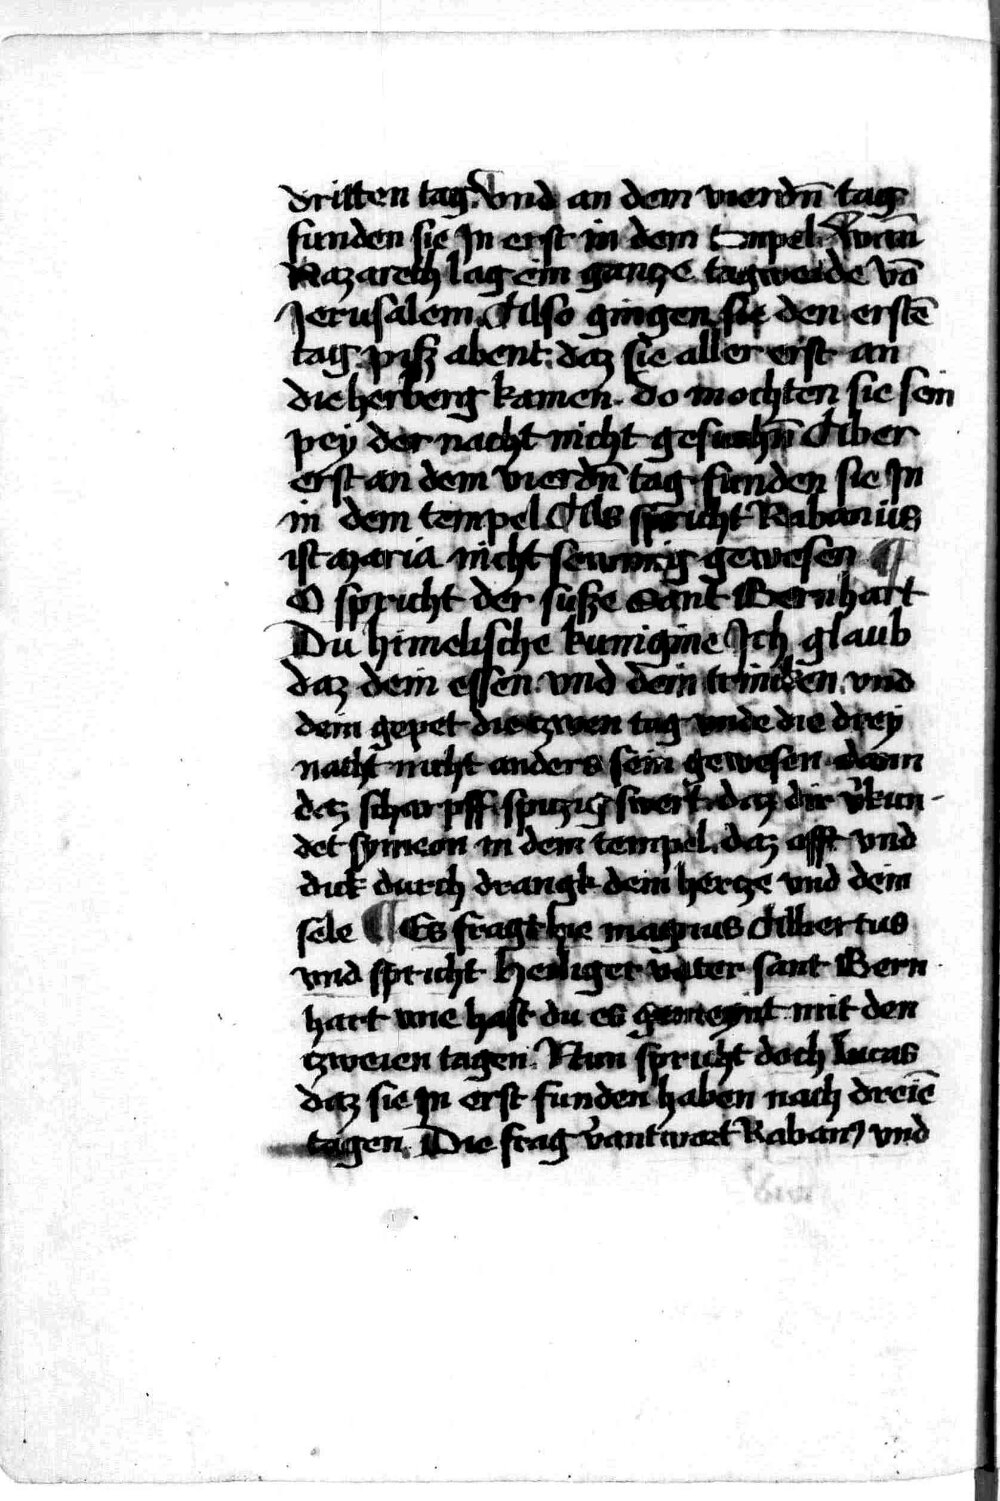 dritten tag. Vnd an dem vierdn̄ tag
funden sie Jn erst in dem tempel. Wañ
Nazareth lag ein gancze tagweide vō
Jerusalem. Also gingen sie den erstē
tag piſz abent. daz sie aller erst an
die herberg kamen. do mochten sie sein
pey der nacht nicht gesuchn̄ Aber
erst an dem vierdn̄ tag funden sie Jn
in dem tempel. Als spricht Rabanus
ist maria nicht sewmig gewesen ¶
O spricht der susze Sant Bernhart
Du himelische kunigine Jch glaub
daz dein essen. vnd dein trincken. vnd
dein gepet die tzwen tag vnde die drey
nacht nicht anders sein gewesen. dann
daz scharpff. spitzig swert. daz dir v̓kun-
det symeon in dem tempel. daz offt vnd
dick durch drangk dein hercze vnd dein
sele ¶ Es fragt hie magnus Albertus
vnd spricht Heiliger vater sant Bern
hart wie hast du es gemeynt mit den
tzweien tagen. Nun spricht doch lucas
daz sie Jn erst funden haben nach dreiē
tagen. Die frag v̓antwort Raban⁹ vnd